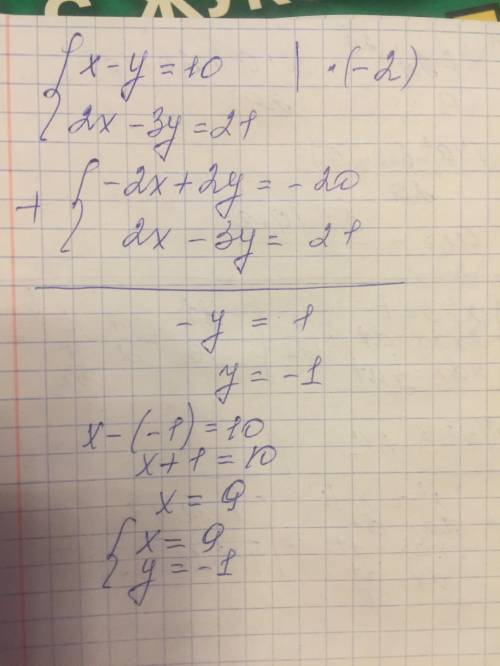 { x - y = 10 | · (-2)
2x - 3y = 21
+ { -2x + 2y = -20
2x - 3y = 21
- y = 1
y = -1
x - (-1) = 10
x + 1 = 10
x = 9
{ x = 9
y = -1